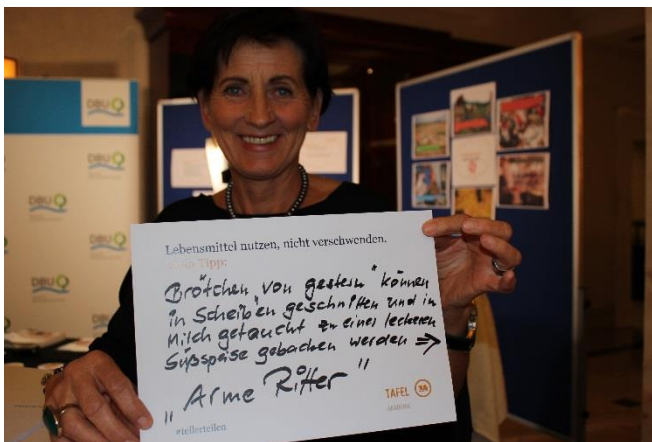 DBU
DBU
DBU
DBU
DBU
DBU
Lebensmittel nutzen, nicht verschwenden.
Tipp:
Brötchen von gestern" können
in Scheiben geschnitten und in
Milch getaucht zu einer leckeren
Süßspeise gebacken werden ⇒
"Arme Ritter"
TAFEL
#tellerteilen